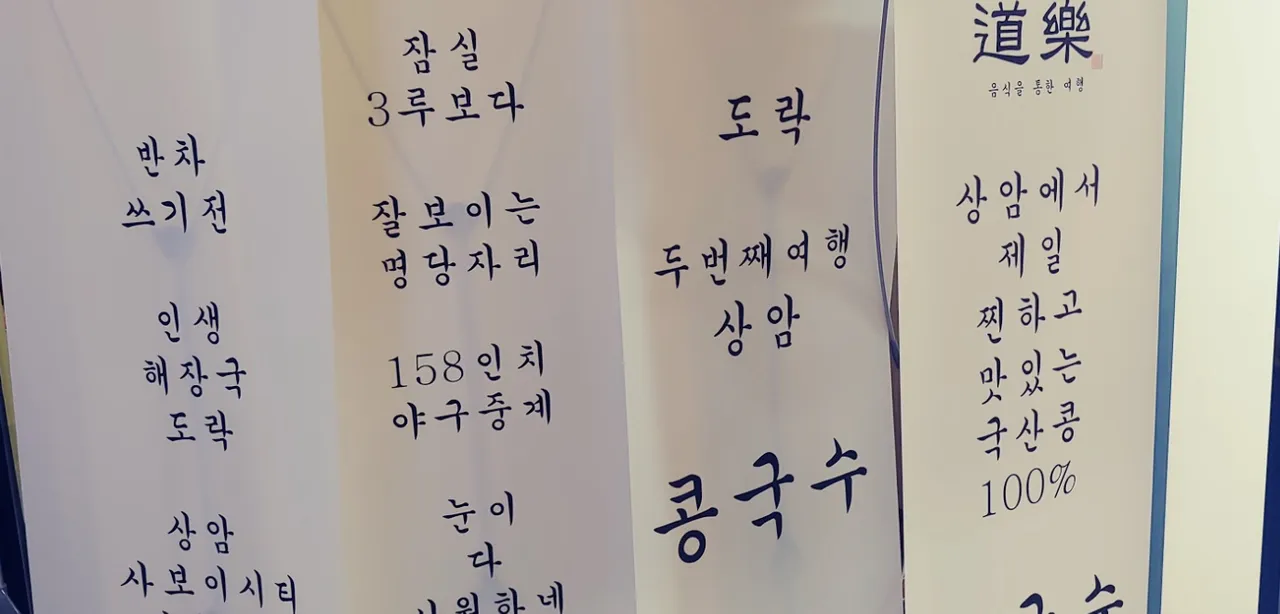 반차
쓰기전
인생
해장국
도락
상암
사보이시티
잠실
3루보다
잘보이는
명당자리
158인치
야구중계
눈이
다
시원하네
도락
두번째여행
상암
콩국수
道樂
음식을 통한 여행
상암에서
제일
찐하고
맛있는
국산콩
100%